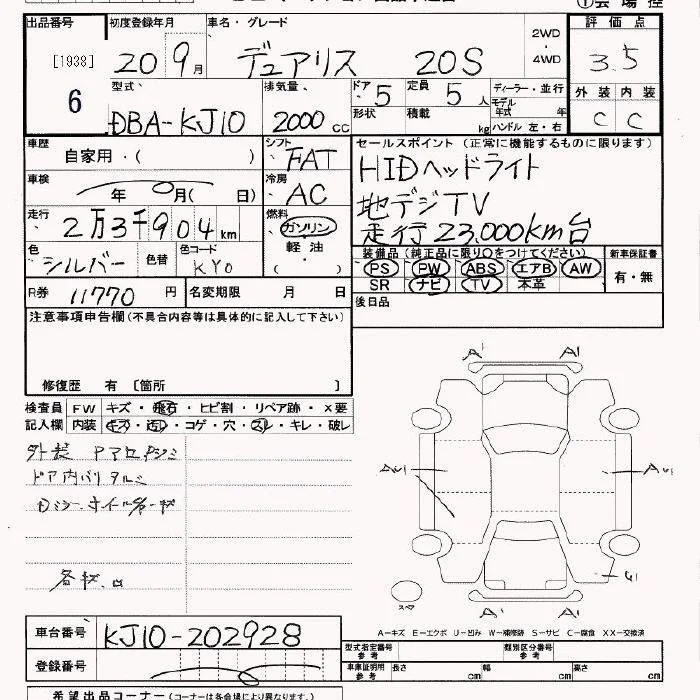 ①会場控
出品番号
初度登録年月
車名・グレード
2WD
・
4WD
評価点
[1938]
6
20 9月
デュアリス 20S
3.5
型式
排気量
ドア
定員
ディーラー・並行
外装 内装
DBA-KJ10
2000cc
5
5人
モデル年式 年
C C
形状
積載 kg
ハンドル 左・右
車歴
シフト
セールスポイント (正常に機能するものに限ります)
自家用・( )
FAT
HIDヘッドライト
車検
冷房
年 月( 日)
AC
地デジTV
走行
燃料
2万3千904km
ガソリン
走行23,000km台
色
色替
色コード
軽油
・( )
シルバー
KY0
装備品 (純正品に限り○をつけてください)
新車保証書
PS PW ABS エアB AW
有・無
SR ナビ TV 本革
R券
11770円
名変期限 月 日
後日品
注意事項申告欄(不具合内容等は具体的に記入して下さい)
修復歴 有 [箇所 ]
検査員
FW キズ・飛石・ヒビ割・リペア跡・X要
記入欄
内装 キズ・汚レ・コゲ・穴・スレ・キレ・破レ
外装
ドア内バリ
A1 A1
A1 A1
車台番号
KJ10-202928
登録番号
A―キズ E―エクボ U―凹み W―補修跡 S―サビ C―腐食 XX―交換済
型式指定番号 参考
類別区分番号 参考
車庫証明用 参考
長さ cm
幅 cm
高さ cm
希望出品コーナー(コーナーは各会場により異なります)